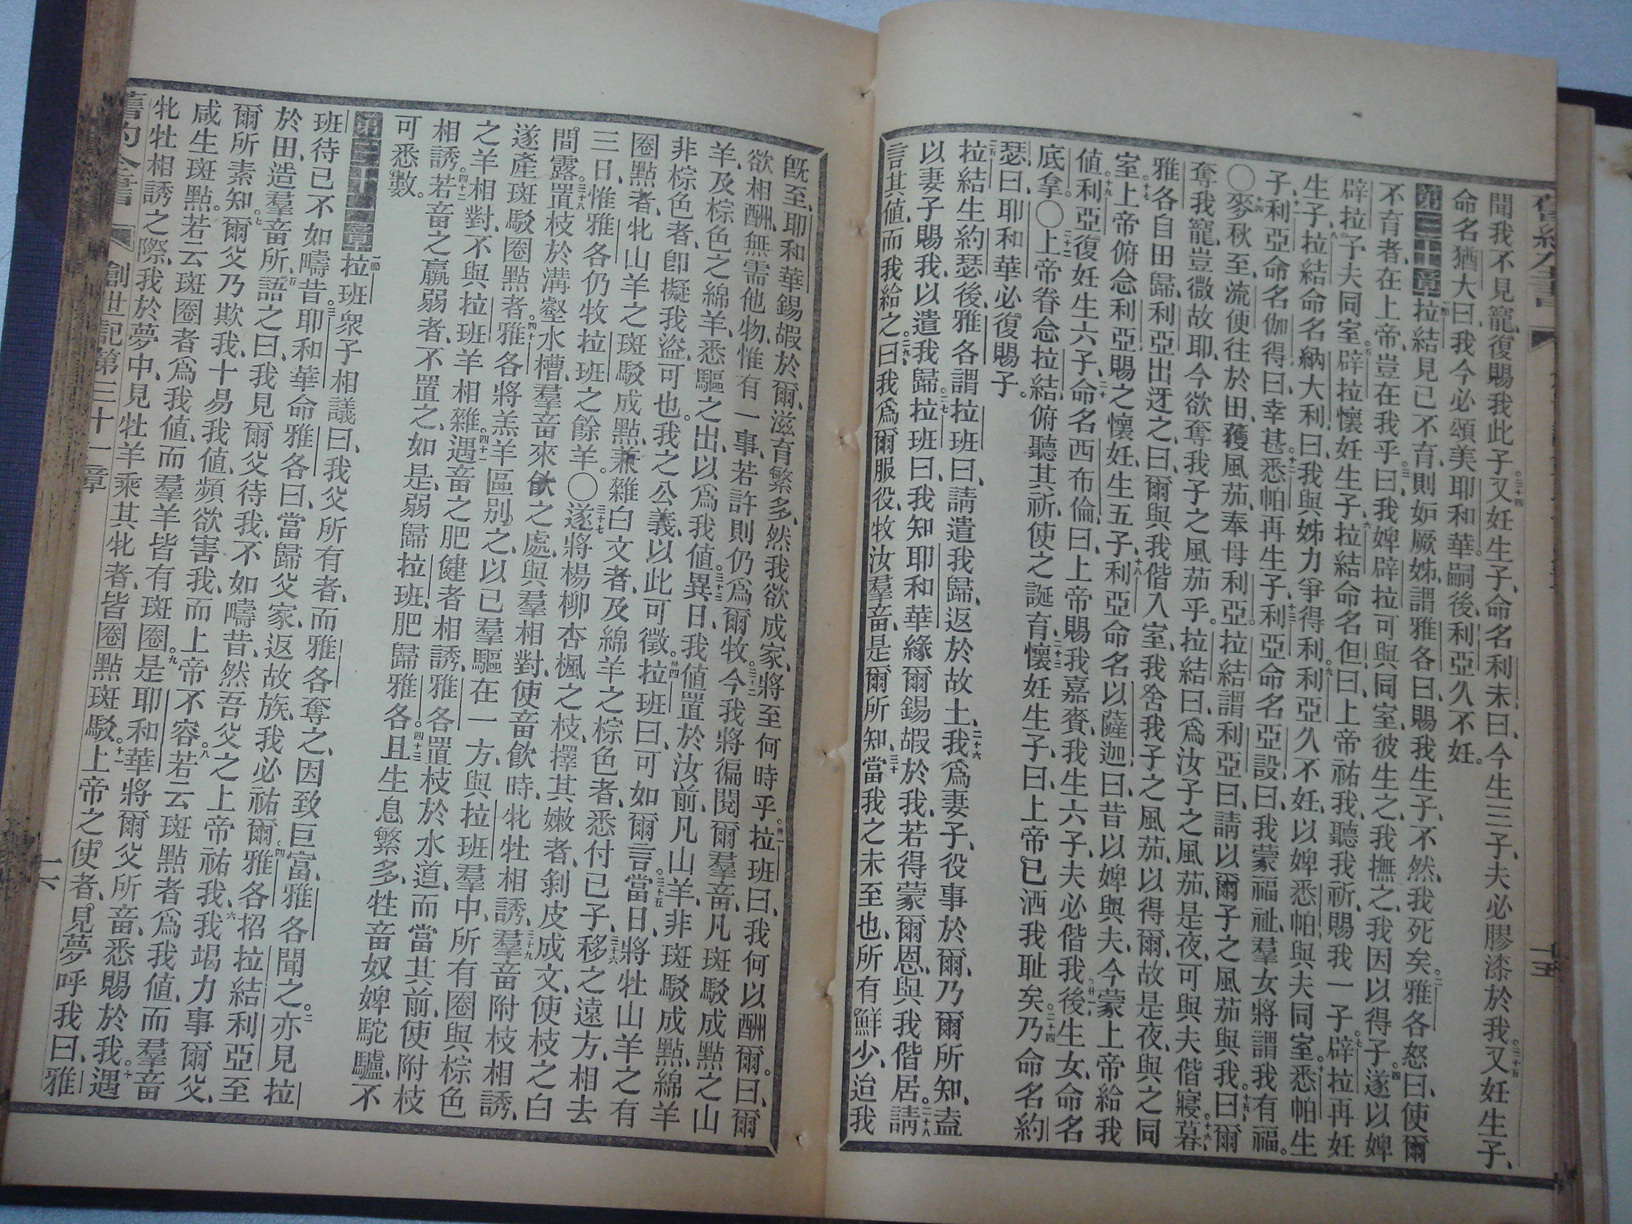 聞我不見寵、復賜我此子。三十四又妊生子、命名利未、曰、今生三子、夫必膠漆於我。三十五又妊生子、
命名猶大、曰、我今必頌美耶和華。嗣後利亞久不妊。
第三十章 一節拉結見己不育、則妒厥姊、謂雅各曰、賜我生子、不然、我死矣。二雅各怒曰、使爾
不育者、在上帝、豈在我乎。三曰、我婢辟拉可與同室、彼生之、我撫之、我因以得子。四遂以婢
辟拉予夫同室。五辟拉懷妊生子。六拉結命名但、曰、上帝祐我、聽我祈、賜我一子。七辟拉再妊
生子、八拉結命名納大利、曰、我與姊力爭得利。九利亞久不妊、以婢悉帕與夫同室。十悉帕生
子、十一利亞命名伽得、曰、幸甚。十二悉帕再生子、十三利亞命名亞設、曰、我蒙福祉、羣女將謂我有福。
〇十四麥秋至、流便往於田、獲風茄、奉母利亞。拉結謂利亞曰、請以爾子之風茄與我。十五曰、爾
奪我寵、豈微故耶、今欲奪我子之風茄乎。拉結曰、爲汝子之風茄、是夜可與夫偕寢。十六暮、
雅各自田歸、利亞出迓之、曰、爾與我偕入室、我舍我子之風茄、以得爾、故是夜與之同
室。十七上帝俯念利亞、賜之懷妊、生五子。十八利亞命名以薩迦、曰、昔以婢與夫、今蒙上帝給我
値。十九利亞復妊、生六子、二十命名西布倫、曰、上帝賜我嘉賚、我生六子、夫必偕我。二十一後生女、命名
底拿。〇二十二上帝眷念拉結、俯聽其祈、使之誕育、二十三懷妊生子、曰、上帝已洒我耻矣。二十四乃命名約
瑟、曰、耶和華必復賜子。
二十五拉結生約瑟後、雅各謂拉班曰、請遣我歸、返於故土。二十六我爲妻子、役事於爾、乃爾所知、盍
以妻子賜我、以遣我歸。二十七拉班曰、我知耶和華緣爾錫嘏於我、若得蒙爾恩、與我偕居。二十八請
言其値、而我給之。二十九曰、我爲爾服役、牧汝羣畜、是爾所知。三十當我之未至也、所有鮮少、迨我
旣至、耶和華錫嘏於爾、滋育繁多、然我欲成家、將至何時乎。卅一拉班曰、我何以酬爾。曰、爾
欲相酬、無需他物、惟有一事、若許、則仍爲爾牧。三十二今我將徧閱爾羣畜、凡斑駁成點之山
羊、及棕色之綿羊、悉驅之出、以爲我値。三十三異日、我値置於汝前、凡山羊、非斑駁成點、綿羊
非棕色者、卽擬我盜可也、我之公義、以此可徵。卅四拉班曰、可如爾言。三十五當日、將牡山羊之有
圈點者、牝山羊之斑駁成點、兼雜白文者、及綿羊之棕色者、悉付己子、三十六移之遠方、相去
三日、惟雅各仍牧拉班之餘羊。〇三十七遂將楊柳杏楓之枝、擇其嫩者、剝皮成文、使枝之白
間露、三十八置枝於溝壑水槽、羣畜來飮之處、與羣相對、使畜飮時、牝牡相誘、三十九羣畜附枝相誘、
遂產斑駁圈點者。四十雅各將羔羊區別之、以己羣驅在一方、與拉班羣中所有圈與棕色
之羊相對、不與拉班羊相雜。四十一遇畜之肥健者相誘、雅各置枝於水道、而當其前、使附枝
相誘。四十二若畜之羸弱者、不置之、如是、弱歸拉班、肥歸雅各。四十三且生息繁多、牲畜奴婢駝驢、不
可悉數。
第三十一章 一節拉班衆子相議曰、我父所有者、而雅各奪之、因致巨富、雅各聞之。二亦見拉
班待己不如疇昔。三耶和華命雅各曰、當歸父家、返故族、我必祐爾。四雅各招拉結利亞至
於田、造羣畜所、五語之曰、我見爾父待我不如疇昔、然吾父之上帝祐我。六我竭力事爾父、
爾所素知。七爾父乃欺我、十易我値、頻欲害我、而上帝不容。八若云斑點者爲我値、而羣畜
咸生斑點、若云斑圈者爲我値、而羣羊皆有斑圈。九是耶和華將爾父所畜、悉賜於我。十遇
牝牡相誘之際、我於夢中、見牡羊乘其牝者、皆圈點斑駁。十一上帝之使者、見夢呼我曰、雅
舊約全書
創世記第三十一章
十六